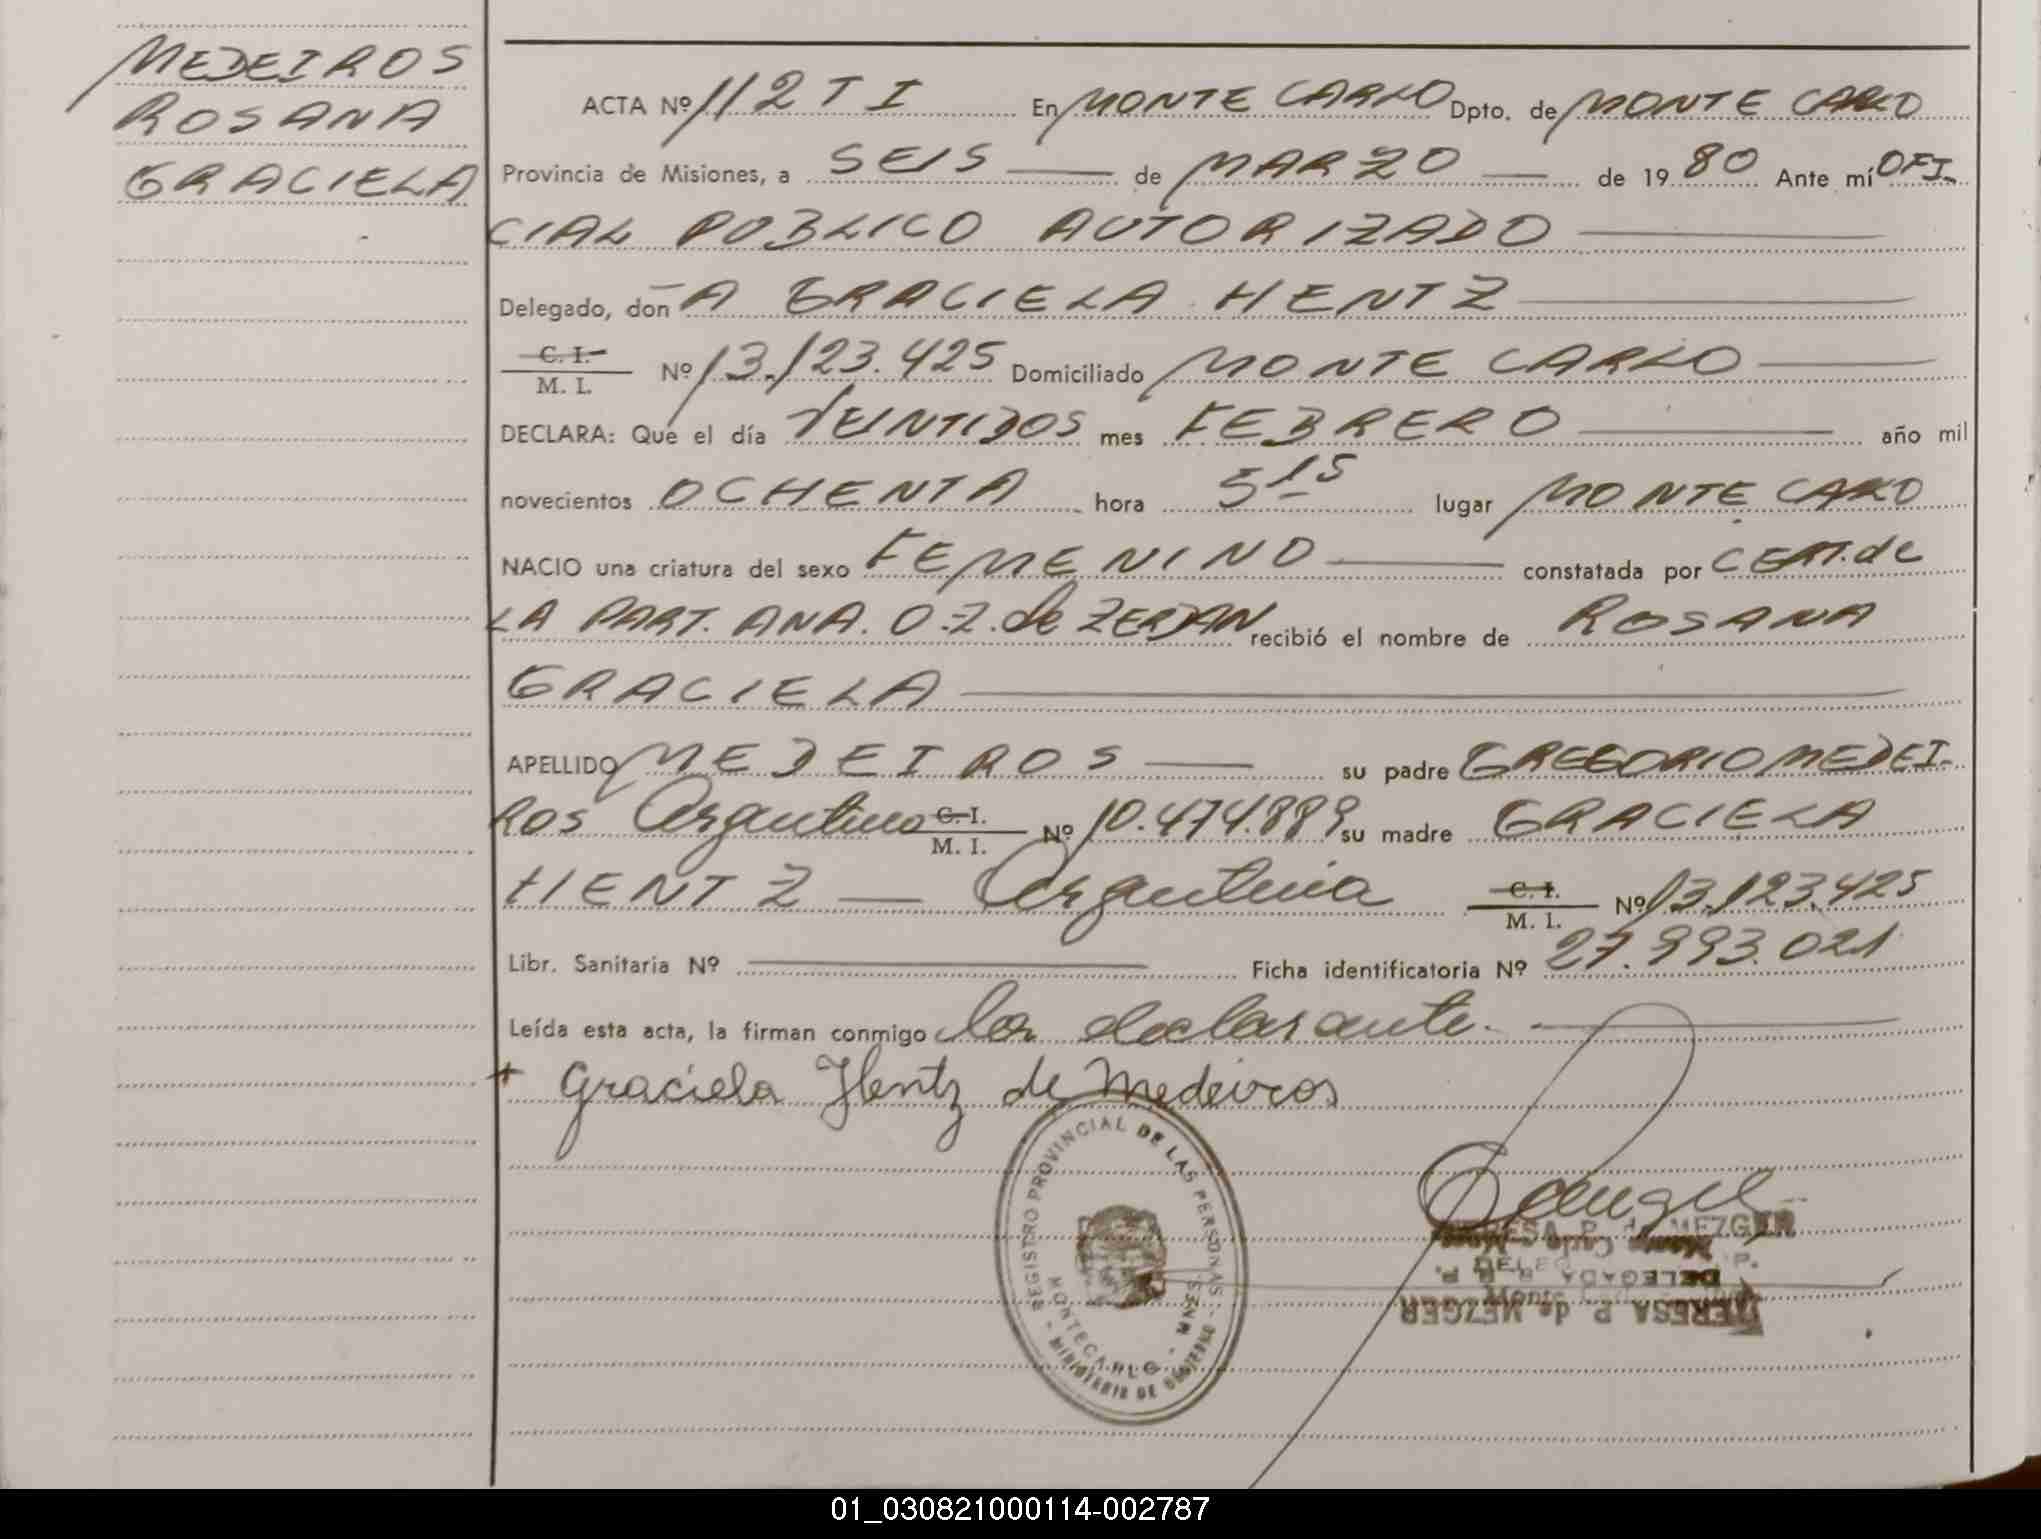 MEDEIROS
ROSANA
GRACIELA
ACTA Nº 112 T I En MONTE CARLO Dpto. de MONTE CARLO
Provincia de Misiones, a SEIS — de MARZO — de 1980 Ante mí OFI-
CIAL PÚBLICO AUTORIZADO —
Delegado, don A GRACIELA HENTZ —
C. I.
M. I. Nº 13.123.425 Domiciliado MONTE CARLO —
DECLARA: Que el día VEINTIDOS mes FEBRERO — año mil
novecientos OCHENTA hora 5 15 lugar MONTE CARLO
NACIO una criatura del sexo FEMENINO — constatada por CERT. de
LA PART. ANA. O. Z. de ZERDAN recibió el nombre de ROSANA
GRACIELA —
APELLIDO MEDEIROS — su padre GREGORIO MEDEI-
ROS Argentino C. I. M. I. Nº 10.474.889 su madre GRACIELA
HENTZ — Argentina C. I. M. I. Nº 13.123.425
Libr. Sanitaria Nº — Ficha identificatoria Nº 27.993.021
Leída esta acta, la firman conmigo la declarante. —
+ Graciela Hentz de Medeiros
REGISTRO PROVINCIAL DE LAS PERSONAS
MONTECARLO - MNES.
MINISTERIO DE GOBIERNO
TERESA P. de MEZGER
DELEGADA R. P.
TERESA P. de MEZGER
01_030821000114-002787